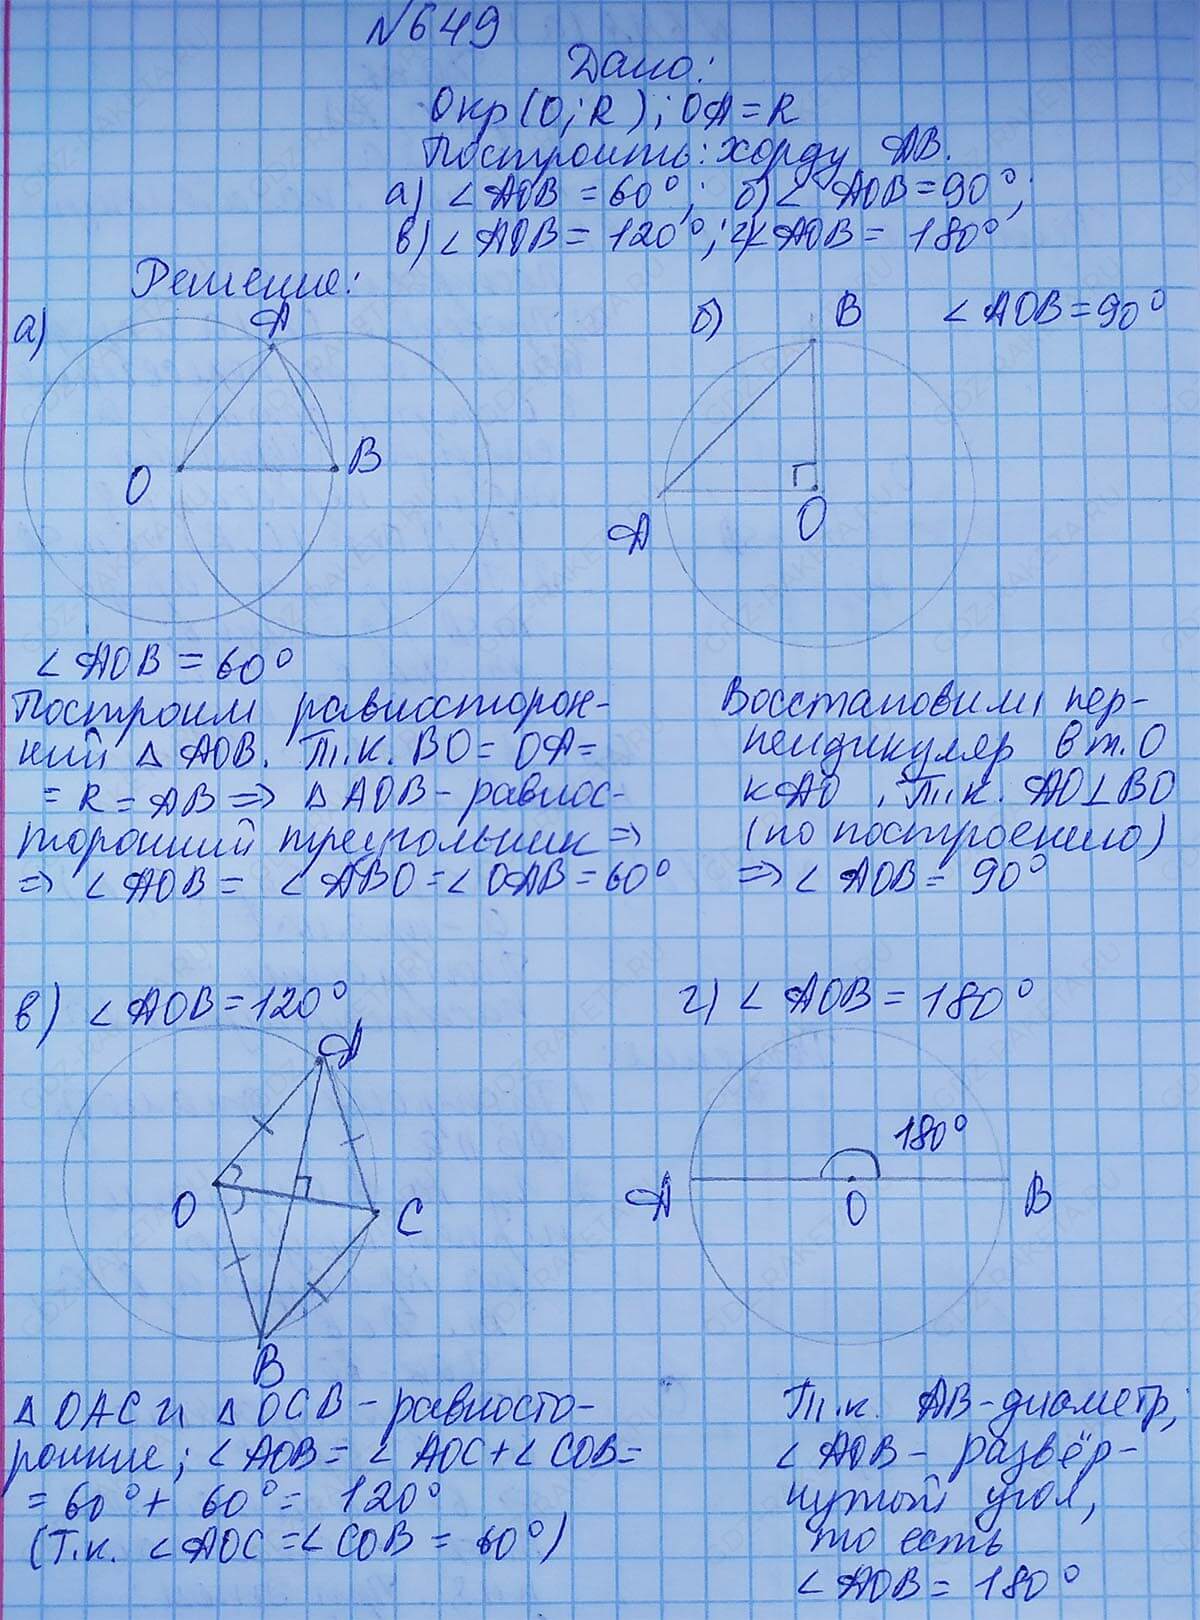 №649
Дано:
Окр(O;R); OA=R
Построить: хорду AB.
а) ∠AOB = 60°; б) ∠AOB=90°;
в) ∠AOB = 120°; г) ∠AOB = 180°
Решение:
а)
A
O
B
∠AOB = 60°
Построим равносторон-
ний △AOB. Т.к. BO = OA=
= R = AB ⇒ △AOB - равнос-
торонний треугольник ⇒
⇒ ∠AOB = ∠ABO = ∠OAB = 60°
б)
B
∠AOB=90°
A
O
Восстановим пер-
пендикуляр в т.O
к AO, Т.к. AO⊥BO
(по построению)
⇒ ∠AOB = 90°
в) ∠AOB=120°
A
O
C
B
△OAC и △OCB - равносто-
ронние; ∠AOB = ∠AOC+∠COB=
= 60° + 60° = 120°
(Т.к. ∠AOC = ∠COB = 60°)
г) ∠AOB = 180°
180°
A
O
B
Т.к. AB-диаметр,
∠AOB - развёр-
нутый угол,
то есть
∠AOB = 180°